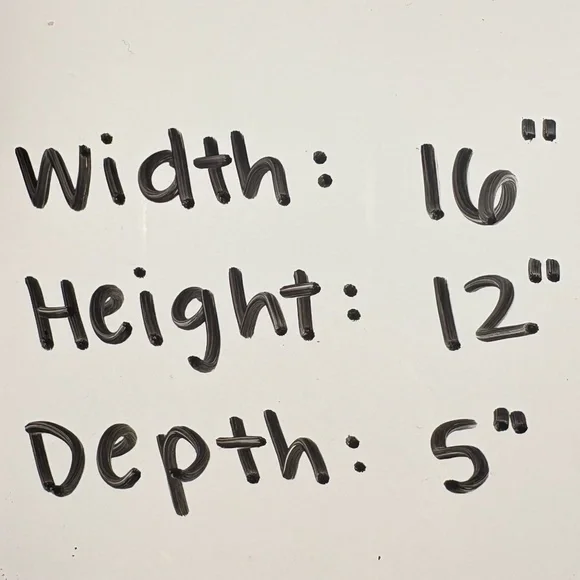 Width: 16"
Height: 12"
Depth: 5"